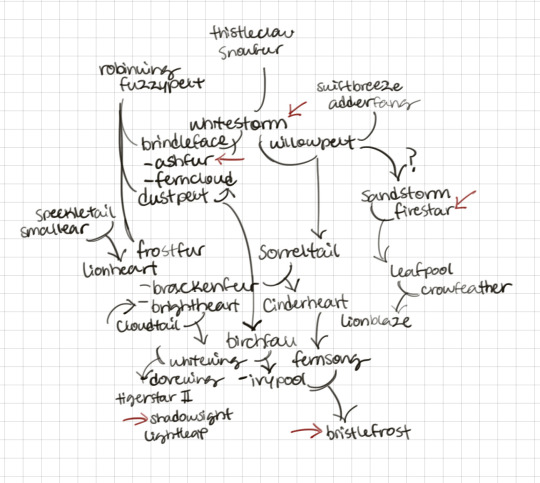 thistleclaw
snowfur
robinwing
fuzzypelt
swiftbreeze
adderfang
whitestorm
brindleface
willowpelt
-ashfur
-ferncloud
dustpelt
?
sandstorm
firestar
speckletail
smallear
frostfur
lionheart
sorreltail
leafpool
crowfeather
-brackenfur
-brightheart
cinderheart
cloudtail
lionblaze
birchfall
whitewing
fernsong
-dovewing
-ivypool
tigerstar II
shadowsight
lightleap
bristlefrost